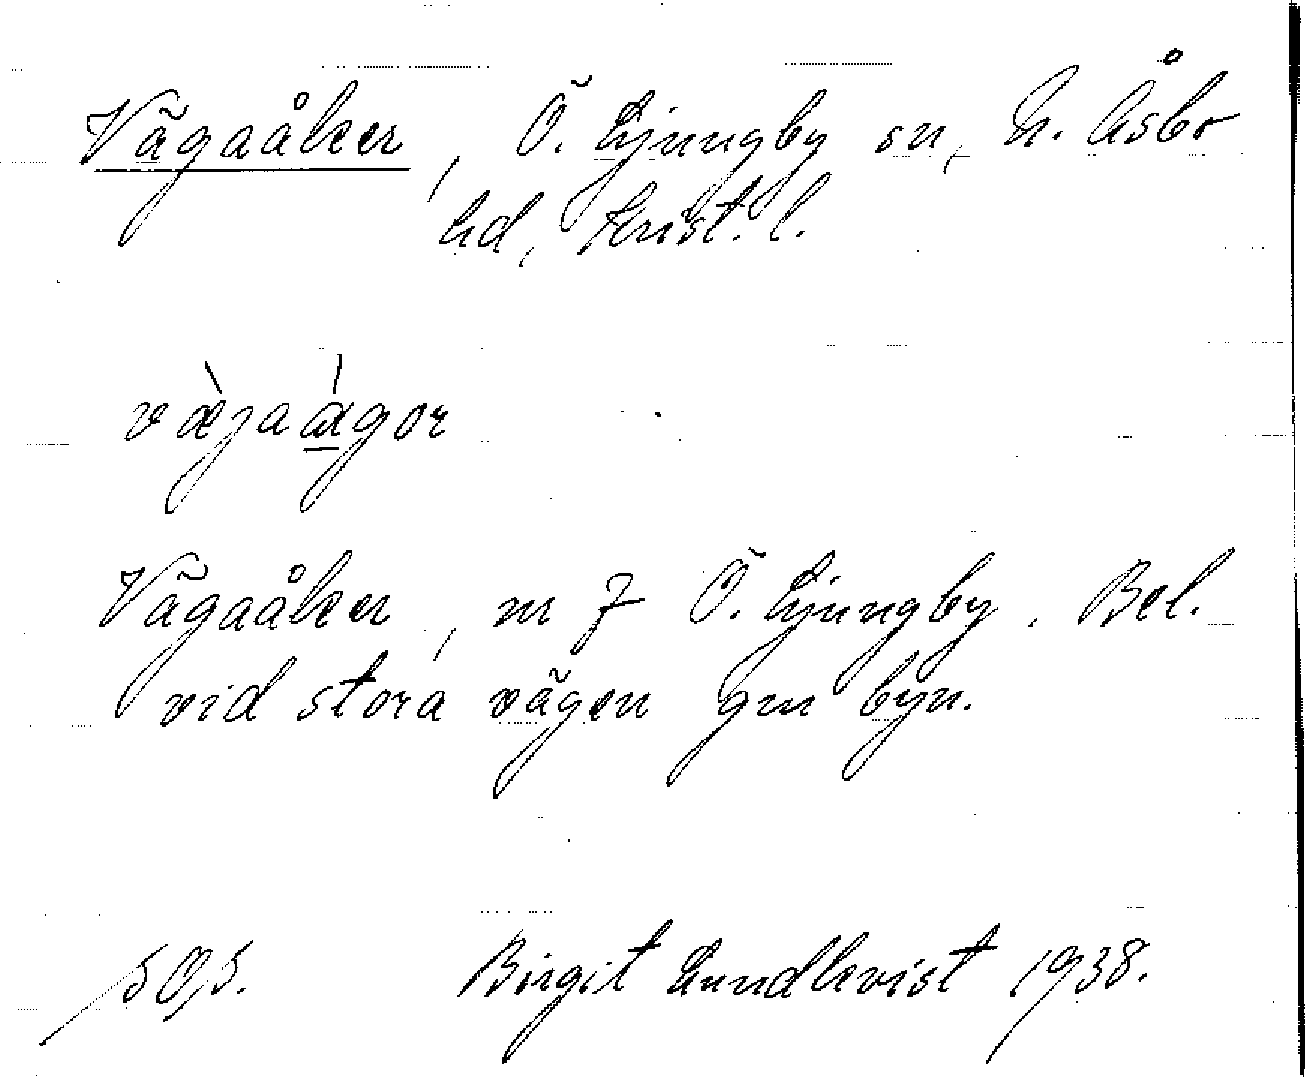 Vägaåker, Ö. Ljungby sn, N. Åsbo
hd, Krist. l.
væ̀jaá̱gor
Vägaåker, nr 7 Ö. Ljungby. Bel.
vid stora vägen gm byn.
Birgit Lundkvist 1938.